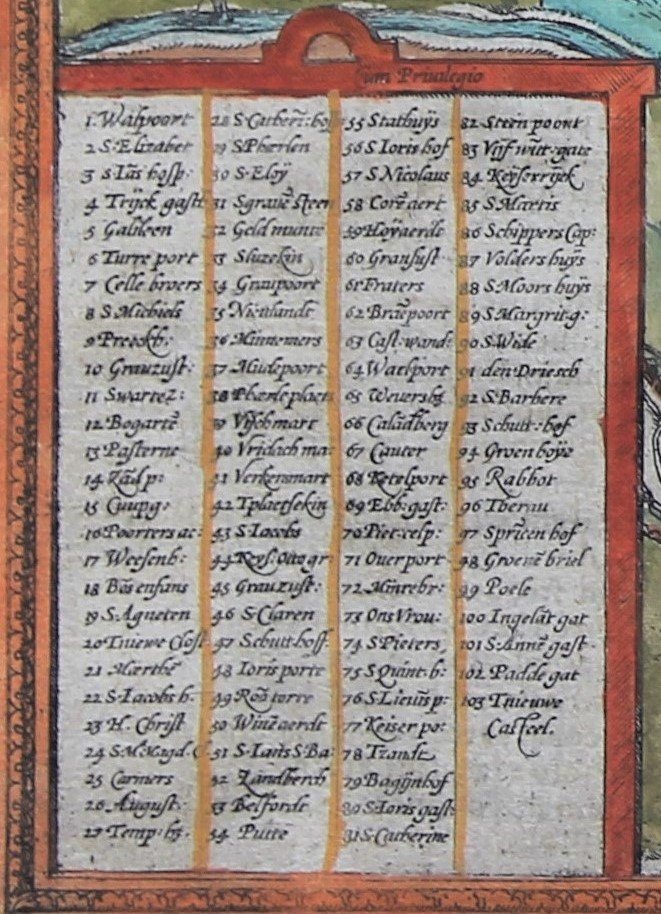 Cum Priuilegio
1. Walpoort
2 S. Elizabet
3 S. Iās hosp:
4 Trijck gasth
5 Galileen
6 Turre port
7 Celle broers
8 S. Michiels
9 Preeckh:
10 Grauzust:
11 Swartez:
12 Bogartē
13 Pasterne
14 Zād p:
15 Cuupg:
16 Poorters ac:
17 Weesenh:
18 Bōs enfans
19 S. Agneten
20 Tniewe Clost
21 Marthē
22 S. Iacobs h:
23 H. Christ
24 S. M. Magd. C
25 Carmers
26 August:
27 Temp: hg.
28 S. Catherī: hof
29 S. Pharlen
30 S. Eloÿ
31 Sgrauē steen
32 Geld munte
33 Sluzekin
34 Graupoort
35 Nieulandt
36 Minnemers
37 Mudepoort
38 Pharle plaen
39 Visch mart
40 Vridach ma:
41 Verkensmart
42 Tplaetsekin
43 S. Iacobs
44 Keys. Otto gr:
45 Grauzust:
46 S. Claren
47 Schutt. hoff:
48 Ioris porte
49 Roō torre
50 Winē aerdt
51 S. Iāns S. Ba:
52 Zandberch
53 Belfordt
54 Putte
55 Stathuÿs
56 S. Ioris hof
57 S. Nicolaus
58 Corē aert
59 Hoÿaerdt
60 Grausust:
61 Fraters
62 Braēpoort
63 Cast: wand:
64 Watlport
65 Weuershg
66 Calādberg
67 Cauter
68 Ketelport
69 Ebb: gast:
70 Piet: celp:
71 Ouerport
72 Minrebr:
73 Ons Vrou:
74 S. Pieters
75 S. Quint: h:
76 S. Lieuīs p:
77 Keiser po:
78 Tzandt
79 Bagijnhof
80 S. Ioris gast:
81 S. Catherine
82 Steen poort
83 Vijf wīt: gate
84 Keyserrijck
85 S. Martis
86 Schippers Cap:
87 Volders huÿs
88 S. Moors huÿs
89 S. Margrit. g:
90 S. Wide
91 den Driesch
92 S. Barbere
93 Schutt: hof
94 Groen hoÿe
95 Rabbot
96 Therau
97 Sprīcen hof
98 Groenē briel
99 Poele
100 Ingelāt gat
101 S. Annē gast.
102 Padde gat
103 Tnieuwe
Casteel.